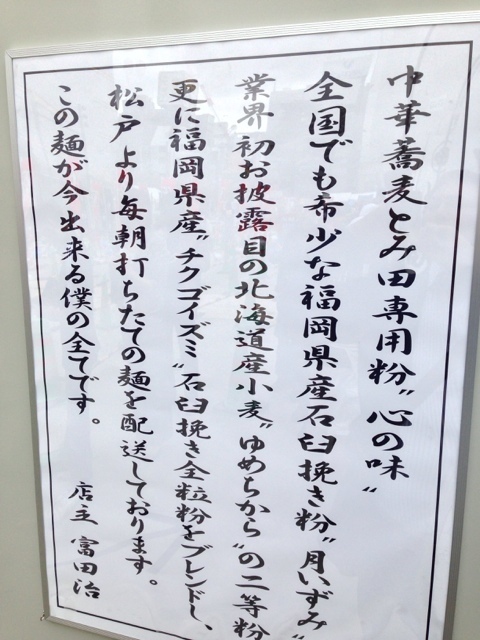 中華蕎麦とみ田専用粉〝心の味〟
全国でも希少な福岡県産石臼挽き粉〝月いずみ〟
業界初お披露目の北海道産小麦〝ゆめちから〟の二等粉
更に福岡県産〝チクゴイズミ〟石臼挽き全粒粉をブレンドし、
松戸より毎朝打ちたての麺を配送しております。
この麺が今出来る僕の全てです。
店主 富田治